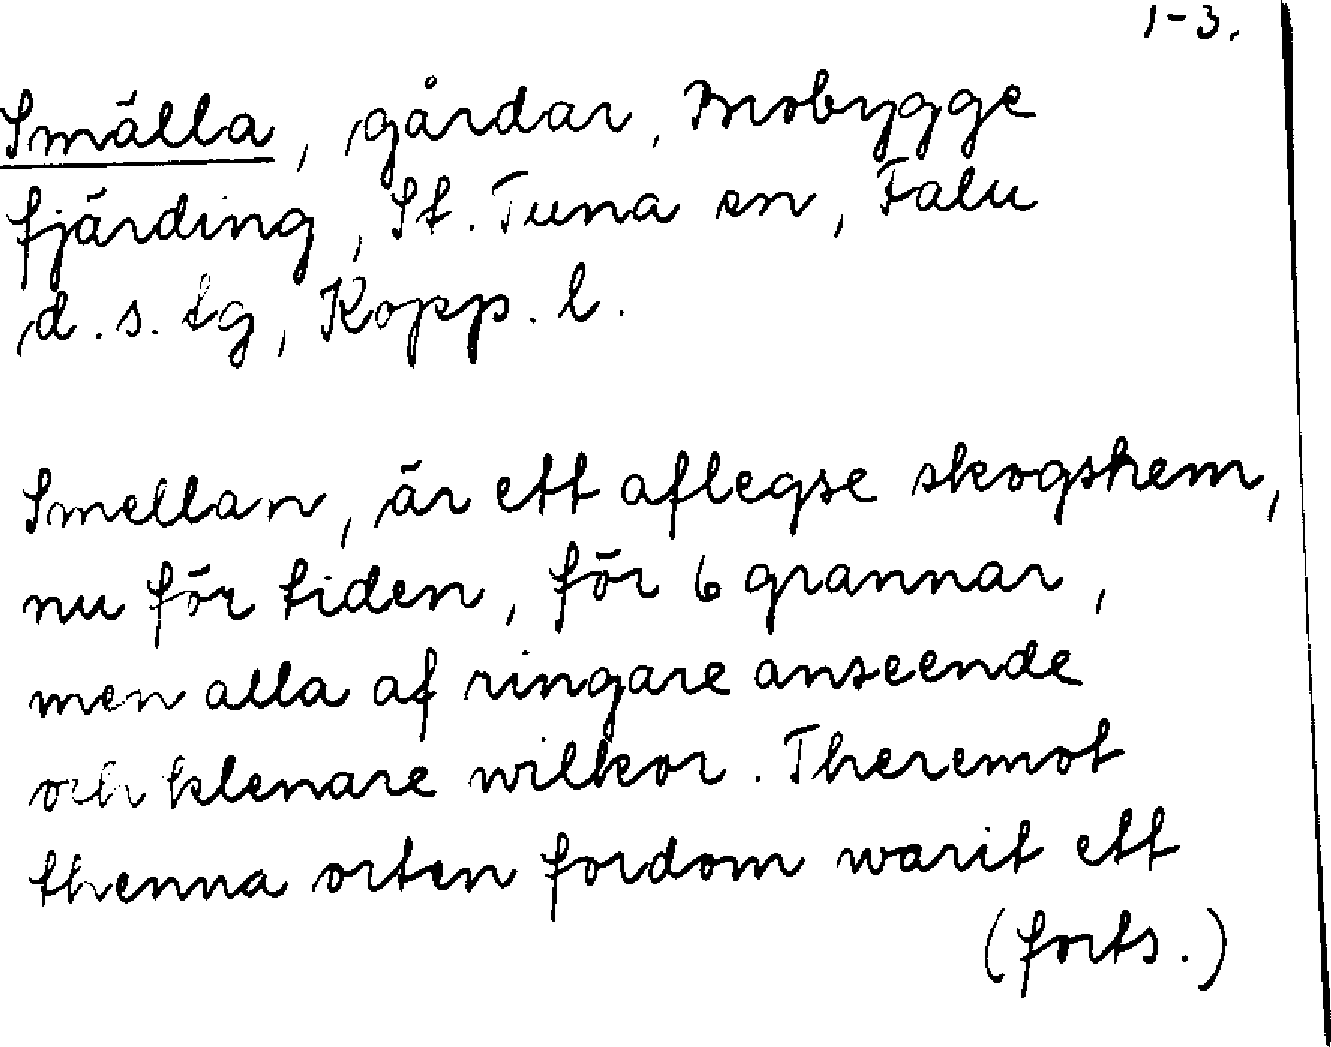 1-3.
Smälla, gårdar, Brobygge
fjärding, St. Tuna sn, Falu
d. s. tg, Kopp. l.
Smellan, är ett aflegse skogshem,
nu för tiden, för 6 grannar,
men alla af ringare anseende
och klenare wilkor. Theremot
thenna orten fordom warit ett
(forts.)